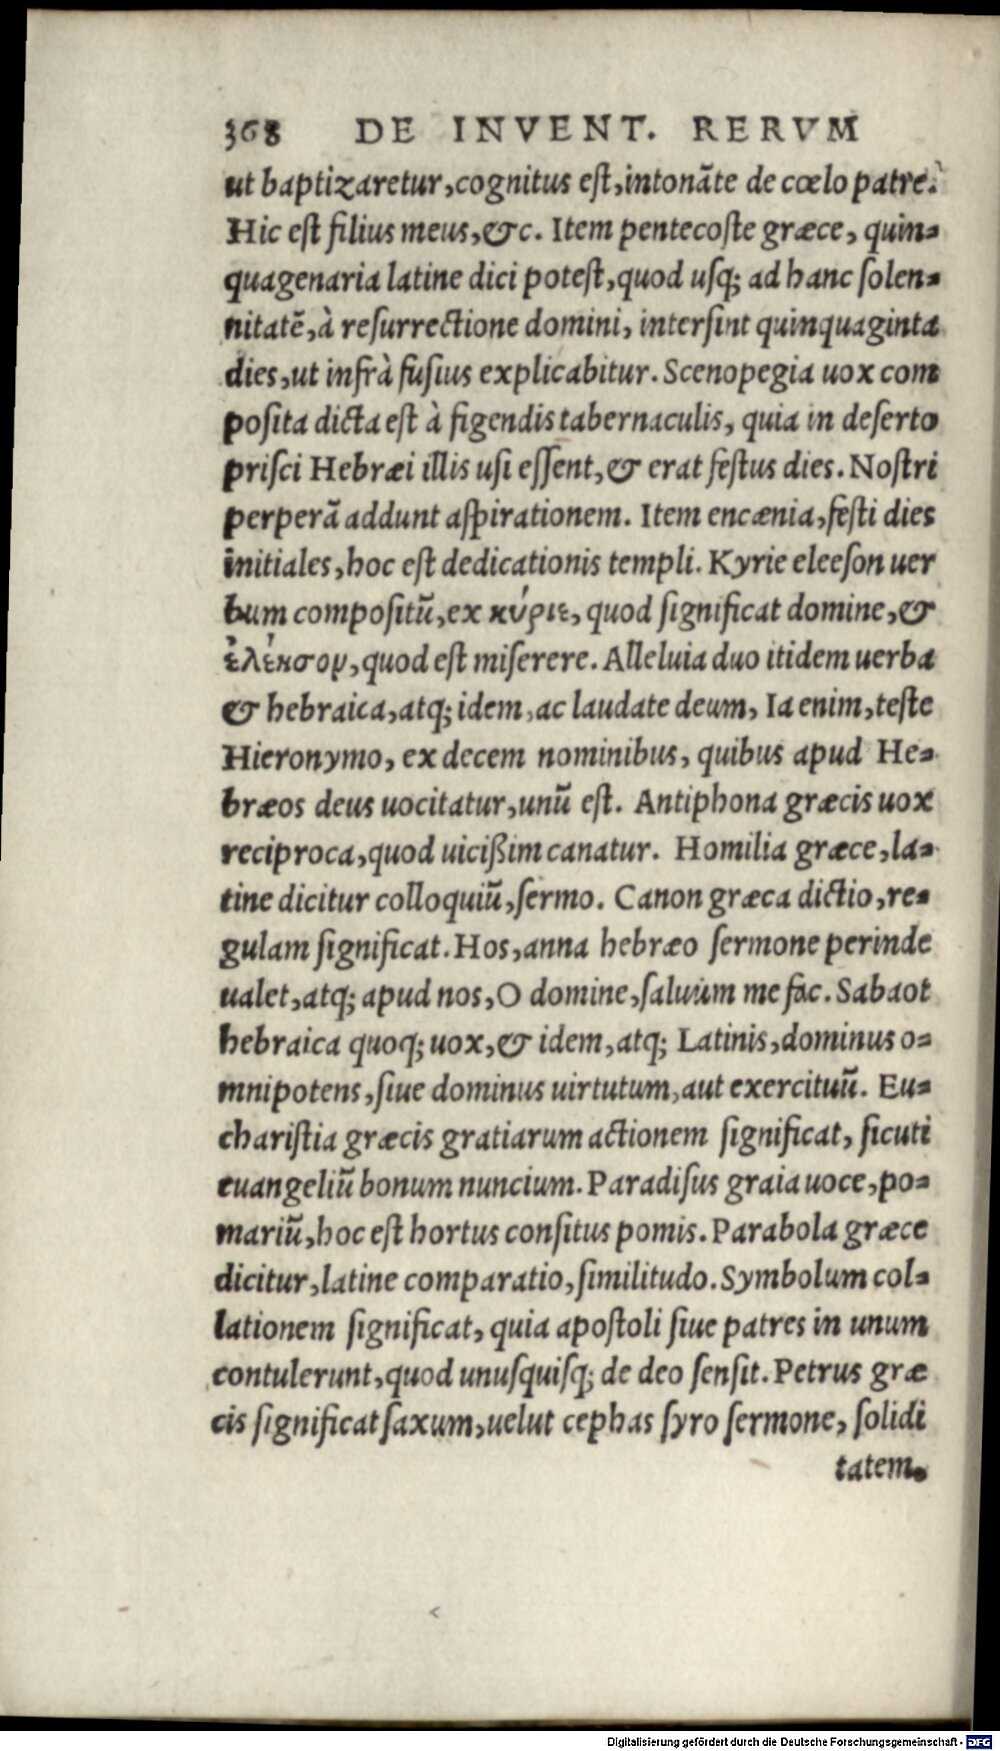 368 DE INVENT. RERVM
ut baptizaretur, cognitus est, intonãte de cœlo patre:
Hic est filius meus, &c. Item pentecoste græce, quin-
quagenaria latine dici potest, quod usq; ad hanc solen-
nitatẽ, à resurrectione domini, intersint quinquaginta
dies, ut infrà fusius explicabitur. Scenopegia uox com
posita dicta est à figendis tabernaculis, quia in deserto
prisci Hebræi illis usi essent, & erat festus dies. Nostri
perperã addunt aspirationem. Item encænia, festi dies
initiales, hoc est dedicationis templi. Kyrie eleeson uer
bum compositũ, ex κύριε, quod significat domine, &
ἐλέησον, quod est miserere. Alleluia duo itidem uerba
& hebraica, atq; idem, ac laudate deum, Ia enim, teste
Hieronymo, ex decem nominibus, quibus apud He-
bræos deus uocitatur, unũ est. Antiphona græcis uox
reciproca, quod uicißim canatur. Homilia græce, la-
tine dicitur colloquiũ, sermo. Canon græca dictio, re-
gulam significat. Hos, anna hebræo sermone perinde
ualet, atq; apud nos, O domine, saluum me fac. Sabaot
hebraica quoq; uox, & idem, atq; Latinis, dominus o-
mnipotens, siue dominus uirtutum, aut exercituũ. Eu-
charistia græcis gratiarum actionem significat, sicuti
euangeliũ bonum nuncium. Paradisus graia uoce, po-
mariũ, hoc est hortus consitus pomis. Parabola græce
dicitur, latine comparatio, similitudo. Symbolum col-
lationem significat, quia apostoli siue patres in unum
contulerunt, quod unusquisq; de deo sensit. Petrus græ
cis significat saxum, uelut cephas syro sermone, solidi
tatem.
Digitalisierung gefördert durch die Deutsche Forschungsgemeinschaft - DFG